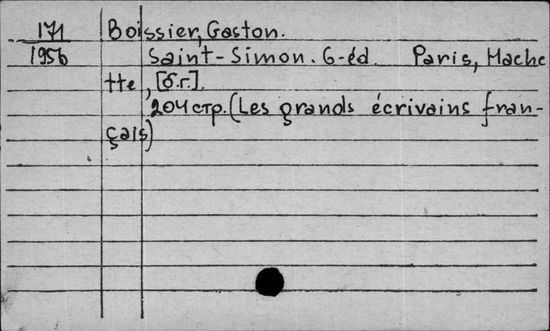 171 Boissier, Gaston.
1956 Saint-Simon. 6-éd. Paris, Hache
tte, [б.г.].
204 стр. (Les grands écrivains fran-
çais)